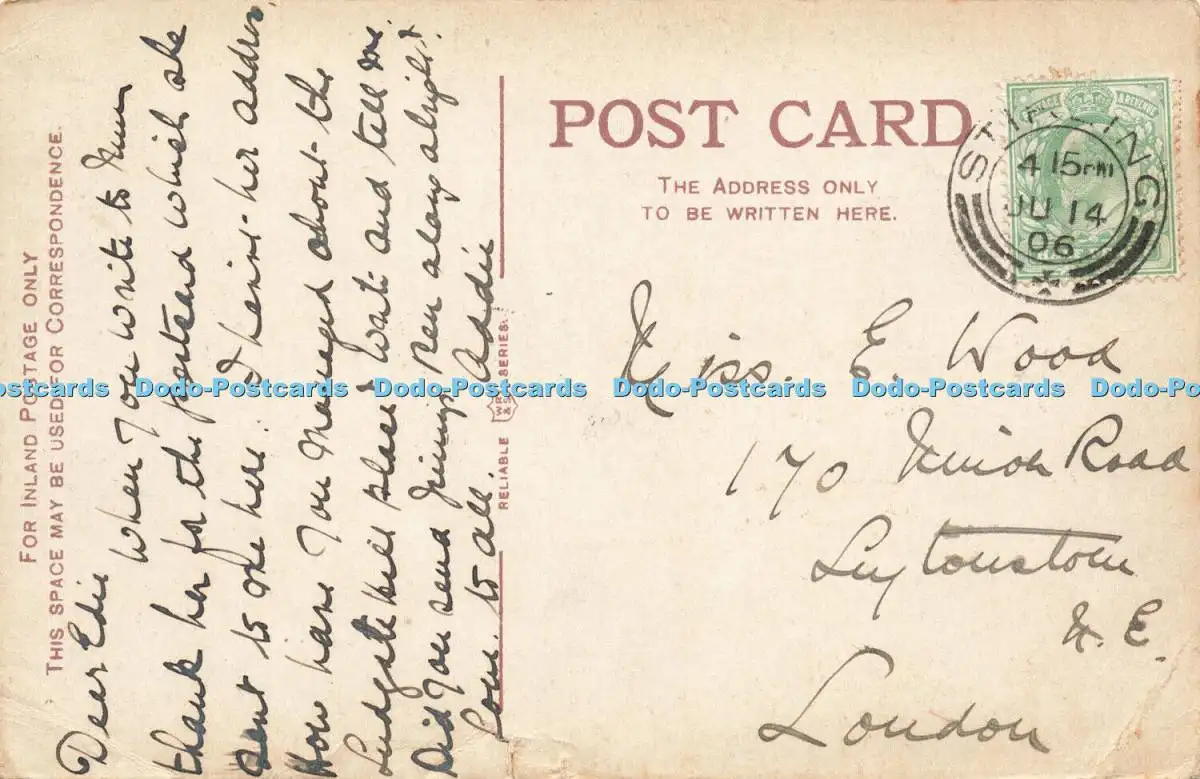 FOR INLAND POSTAGE ONLY
THIS SPACE MAY BE USED FOR CORRESPONDENCE.
Dear Edie
When you write to
thank her for the postcard which she
sent to me here. I havent her address.
How have you managed about the
Ludgate hill place, Wait and tell me.
Did you send Jinnys pen along alright.
Love to all. Addie
RELIABLE WR & S SERIES.
POST CARD
THE ADDRESS ONLY
TO BE WRITTEN HERE.
POSTAGE & REVENUE
STIRLING
4 15PM
JU 14
06
Miss. E. Wood
170 Road
Leytonstone
N. E.
London
Dodo-Postcards Dodo-Postcards Dodo-Postcards Dodo-Postcards Dodo-Postcards Dodo-Postcards